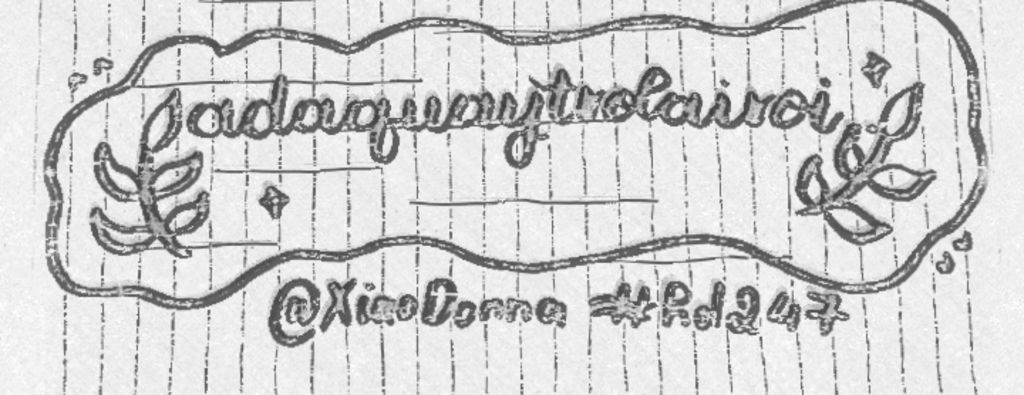 adaquaytrolairoi
@XiaoDonna #Rd247